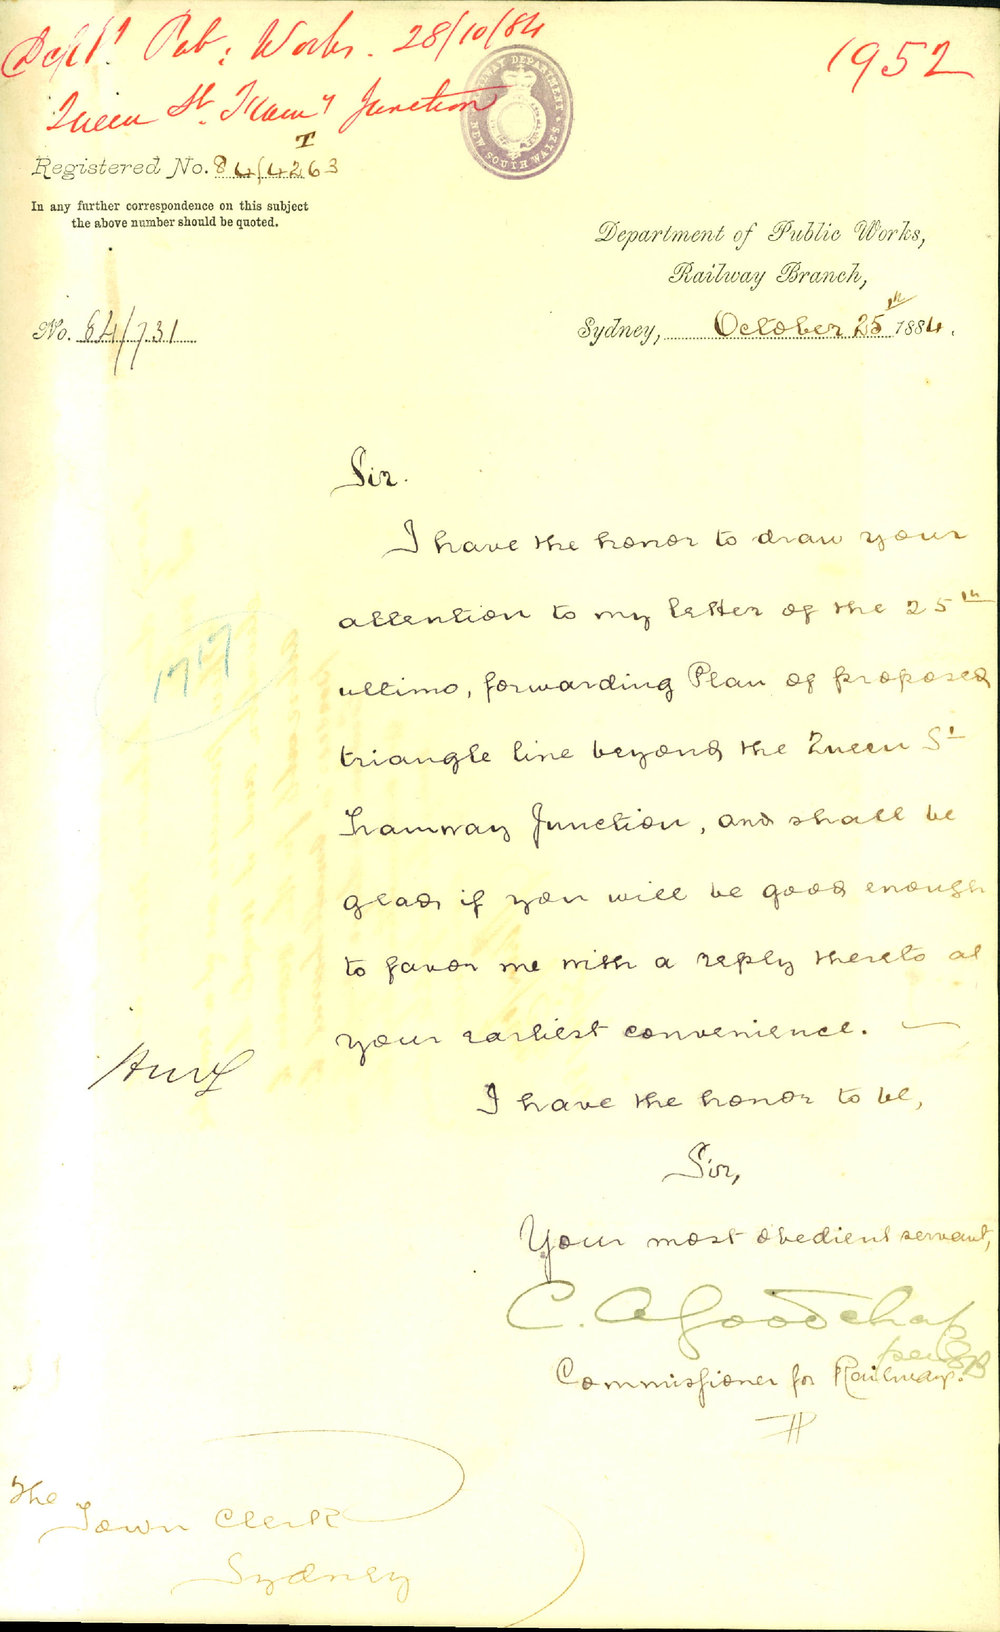 Dept. Pub: Works. 28/10/84
1952
Queen St. Tramy Junction
RAILWAY DEPARTMENT
NEW SOUTH WALES
T
Registered No. 84/4263
In any further correspondence on this subject
the above number should be quoted.
Department of Public Works,
Railway Branch,
No. 84/731
Sydney, October 25th 1884.
Sir.
I have the honor to draw your
attention to my letter of the 25th
ultimo, forwarding Plan of proposed
triangle line beyond the Queen St
Tramway Junction, and shall be
glad if you will be good enough
to favor me with a reply thereto at
your earliest convenience.
1717
I have the honor to be,
Sir,
Your most obedient servant,
C. A Goodchap
per
Commissioner for Railways.
The
Town Clerk
Sydney